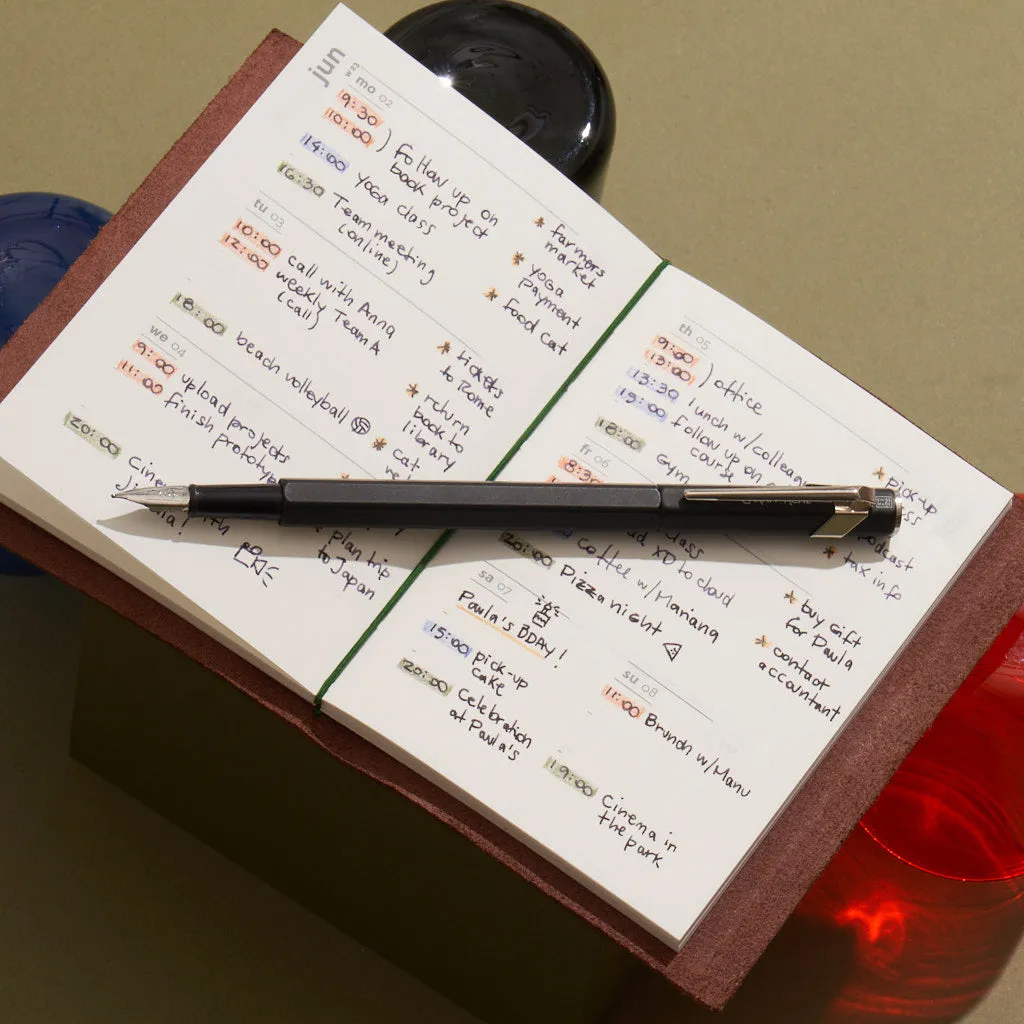 jun
W23
mo 02
9:30
10:00
) Follow up on
book project
14:00
yoga class
16:30
Team meeting
(online)
* farmers
market
* yoga
payment
* food cat
tu 03
10:00
call with Anna
12:00
weekly Team A
(call)
18:00
beach volleyball
* tickets
to Rome
* return
book to
library
* cat
we 04
9:00
upload projects
11:00
finish prototype
20:00
with
plan trip
to Japan
th 05
9:00
13:00
) office
13:30
lunch w/
15:00
follow up on
course
18:00
gym
* pick-up
fr 06
8:30
class
XD to cloud
coffee w/Mariana
20:00
Pizza night
tax info
sa 07
Paula's BDAY!
15:00
pick-up
cake
20:00
Celebration
at Paula's
* buy gift
for Paula
* contact
accountant
su 08
11:00
Brunch w/Manu
19:00
Cinema in
the park